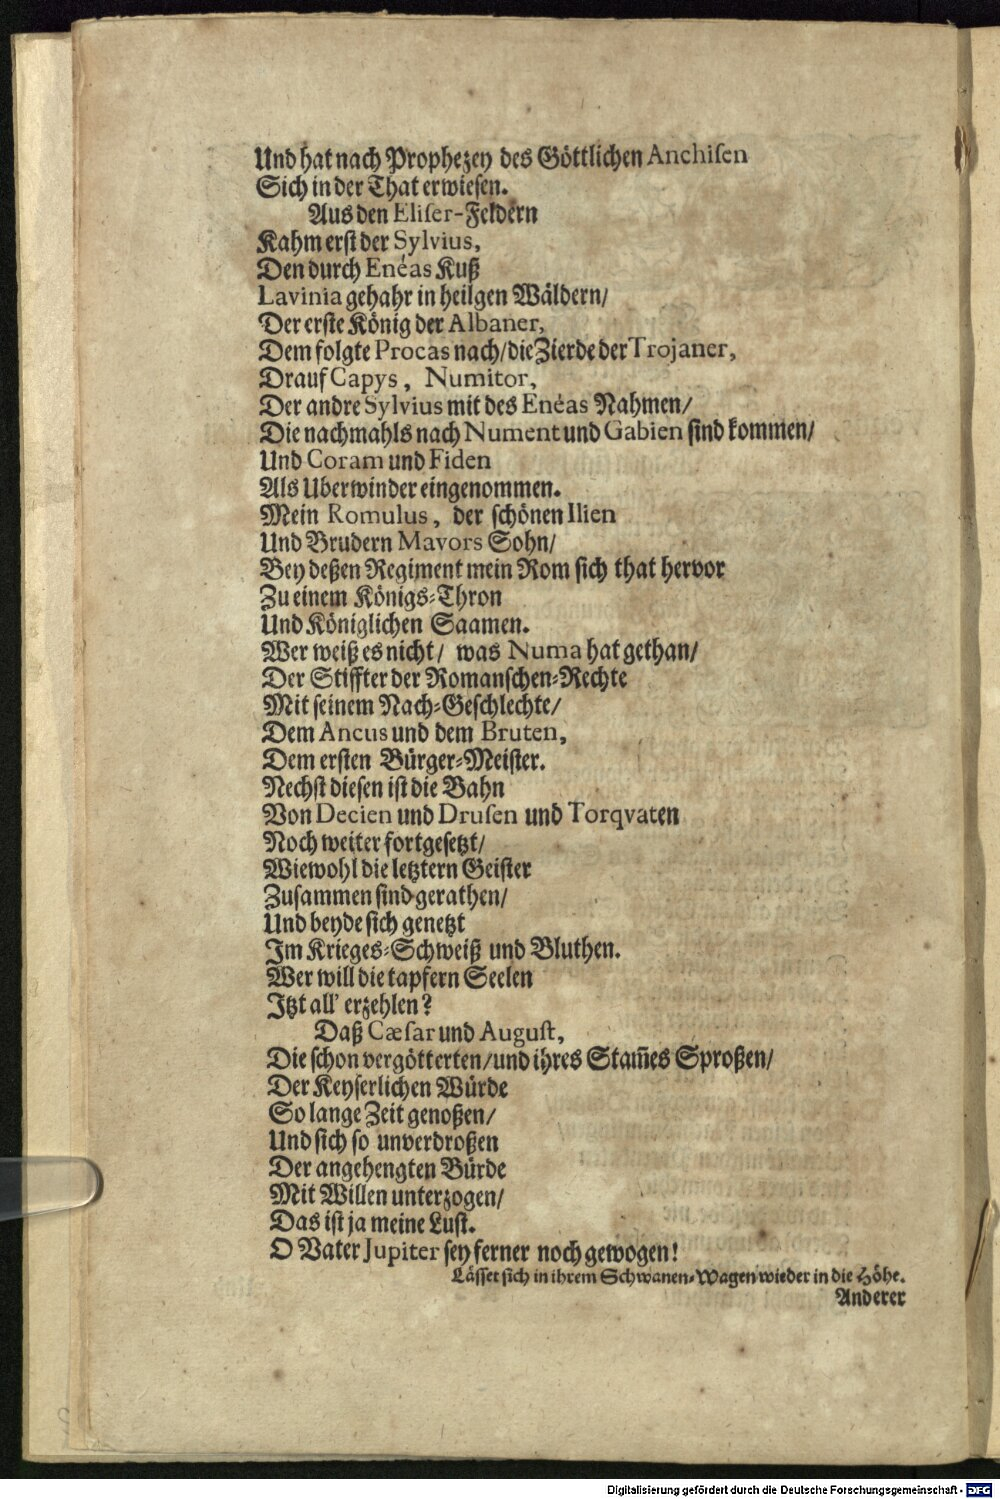 Und hat nach Prophezey des Göttlichen Anchisen
Sich in der That erwiesen.
Aus den Eliser-Feldern
Kahm erst der Sylvius,
Den durch Enéas Kuß
Lavinia gehahr in heilgen Wäldern/
Der erste König der Albaner,
Dem folgte Procas nach/die Zierde der Trojaner,
Drauf Capys, Numitor,
Der andre Sylvius mit des Enéas Nahmen/
Die nachmahls nach Nument und Gabien sind kommen/
Und Coram und Fiden
Als Uberwinder eingenommen.
Mein Romulus, der schönen Ilien
Und Brudern Mavors Sohn/
Bey deßen Regiment mein Rom sich that hervor
Zu einem Königs-Thron
Und Königlichen Saamen.
Wer weiß es nicht/ was Numa hat gethan/
Der Stiffter der Romanschen-Rechte
Mit seinem Nach-Geschlechte/
Dem Ancus und dem Bruten,
Dem ersten Bürger-Meister.
Nechst diesen ist die Bahn
Von Decien und Drusen und Torqvaten
Noch weiter fortgesetzt/
Wiewohl die letztern Geister
Zusammen sind gerathen/
Und beyde sich genetzt
Im Krieges-Schweiß und Bluthen.
Wer will die tapfern Seelen
Itzt all' erzehlen?
Daß Cæsar und August,
Die schon vergötterten/und ihres Stam̃es Sproßen/
Der Keyserlichen Würde
So lange Zeit genoßen/
Und sich so unverdroßen
Der angehengten Bürde
Mit Willen unterzogen/
Das ist ja meine Lust.
O Vater Jupiter sey ferner noch gewogen!
Lässet sich in ihrem Schwanen-Wagen wieder in die Höhe.
Anderer
Digitalisierung gefördert durch die Deutsche Forschungsgemeinschaft - DFG